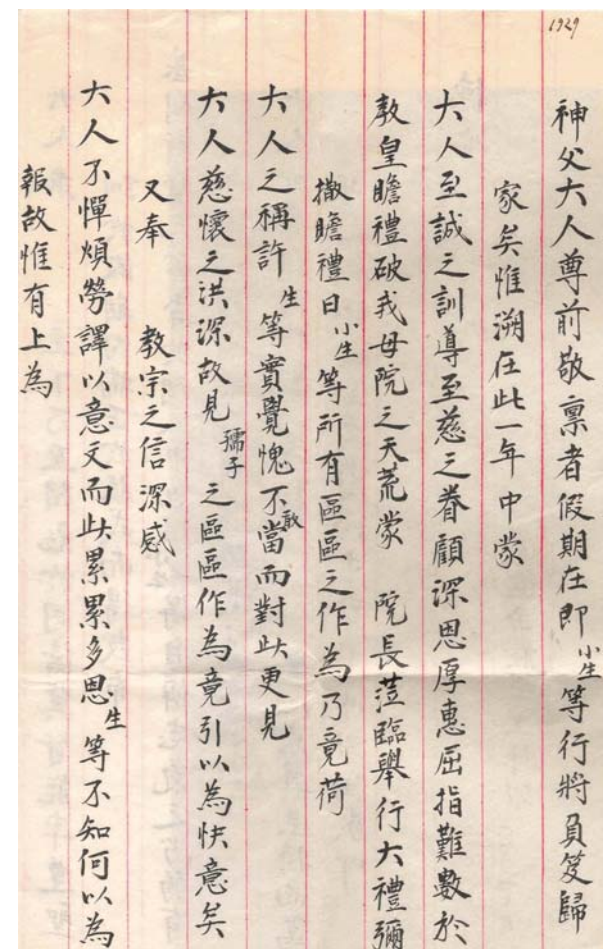 1929
神父大人尊前敬禀者假期在即小生等行將負笈歸
家矣惟溯在此一年中蒙
大人至誠之訓導至慈之眷顧深恩厚惠屈指難數於
教皇瞻禮破我母院之天荒蒙 院長蒞臨舉行大禮彌
撒瞻禮日小生等所有區區之作為乃竟荷
大人之稱許生等實覺愧不敢當而對此更見
大人慈懷之洪深故見孺子之區區作為竟引以為快意矣
又奉 教宗之信深感
大人不憚煩勞譯以意文而此累累多恩生等不知何以為
報故惟有上為